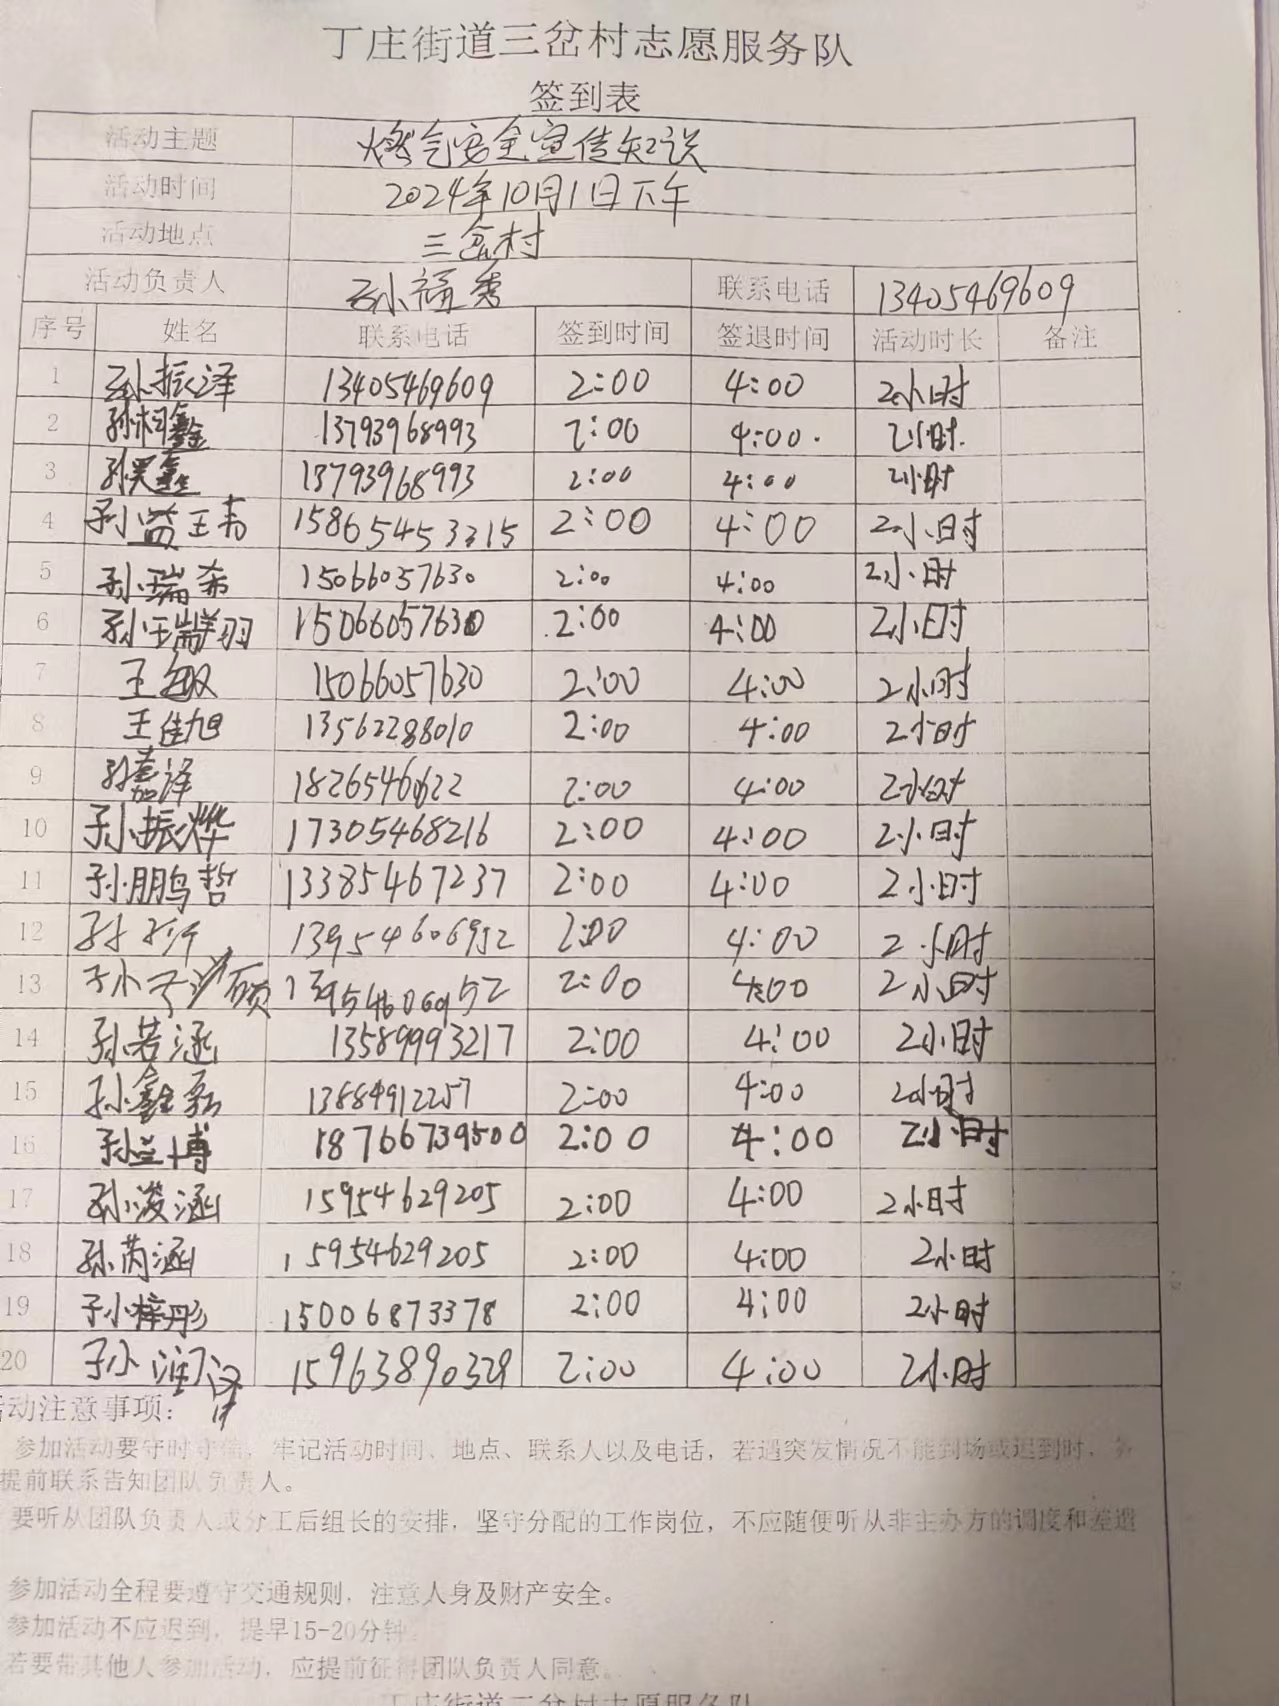 丁庄街道三岔村志愿服务队
签到表
活动主题 燃气安全宣传知识
活动时间 2024年10月1日下午
活动地点 三岔村
活动负责人 孙福秀 联系电话 13405469609
序号 姓名 联系电话 签到时间 签退时间 活动时长 备注
1 孙振泽 13405469609 2:00 4:00 2小时
2 孙相鑫 13793968993 2:00 4:00. 2小时.
3 孙昊鑫 13793968993 2:00 4:00 2小时
4 15865453215 2:00 4:00 2小时
5 孙瑞希 15066057630 2:00 4:00 2小时
6 15066057630 2:00 4:00 2小时
7 王敏 15066057630 2:00 4:00 2小时
8 王佳旭 13562288010 2:00 4:00 2小时
9 孙嘉泽 2:00 4:00 2小时
10 孙振烨 17305468216 2:00 4:00 2小时
11 孙鹏哲 13385467237 2:00 4:00 2小时
12 13954606952 2:00 4:00 2小时
13 13954606952 2:00 4:00 2小时
14 孙若涵 13589993217 2:00 4:00 2小时
15 孙鑫磊 13884912257 2:00 4:00 2小时
16 孙兰博 18766739500 2:00 4:00 2小时
17 孙浚涵 15954629205 2:00 4:00 2小时
18 孙芮涵 15954629205 2:00 4:00 2小时
19 孙梓彤 15006873378 2:00 4:00 2小时
20 孙 15963890329 2:00 4:00 2小时
活动注意事项：
参加活动要守时守信，牢记活动时间、地点、联系人以及电话，若遇突发情况不能到场或迟到时，务
提前联系告知团队负责人。
要听从团队负责人或分工后组长的安排，坚守分配的工作岗位，不应随便听从非主办方的调度和差遣
参加活动全程要遵守交通规则，注意人身及财产安全。
参加活动不应迟到，提早15-20分钟
若要带其他人参加活动，应提前征得团队负责人同意。
丁庄街道三岔村志愿服务队